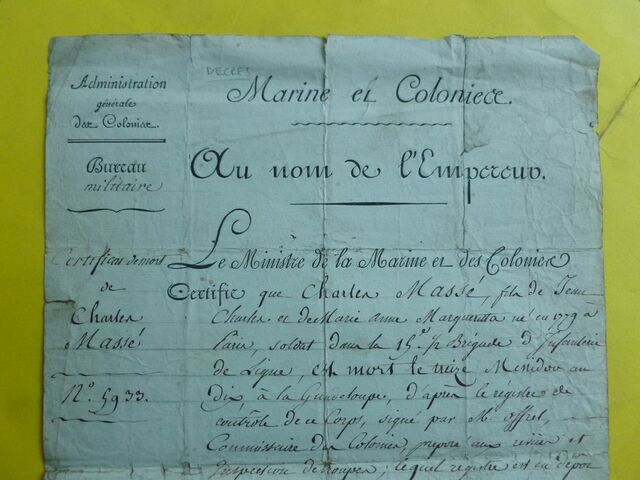 DECES
Administration
générale
des Colonies.
Bureau
militaire
Marine et Colonies.
Au nom de l'Empereur.
Certificat de mort
de
Charles
Massé
N.° 5933.
Le Ministre de la Marine et des Colonies
Certifie que Charles Massé, fils de Jean
Charles et de Marie anne Margueritta né en 1779 à
Paris, soldat dans la 15.e 1/2 Brigade d'Infanterie
de Ligne, est mort le treize Messidor an
Dix, à la Guadeloupe, d'après le régistre de
contrôle de ce Corps, signé par M. Offret,
Commissaire des Colonies, préposé aux revues et
Inspection de troupes; lequel registre est en dépot